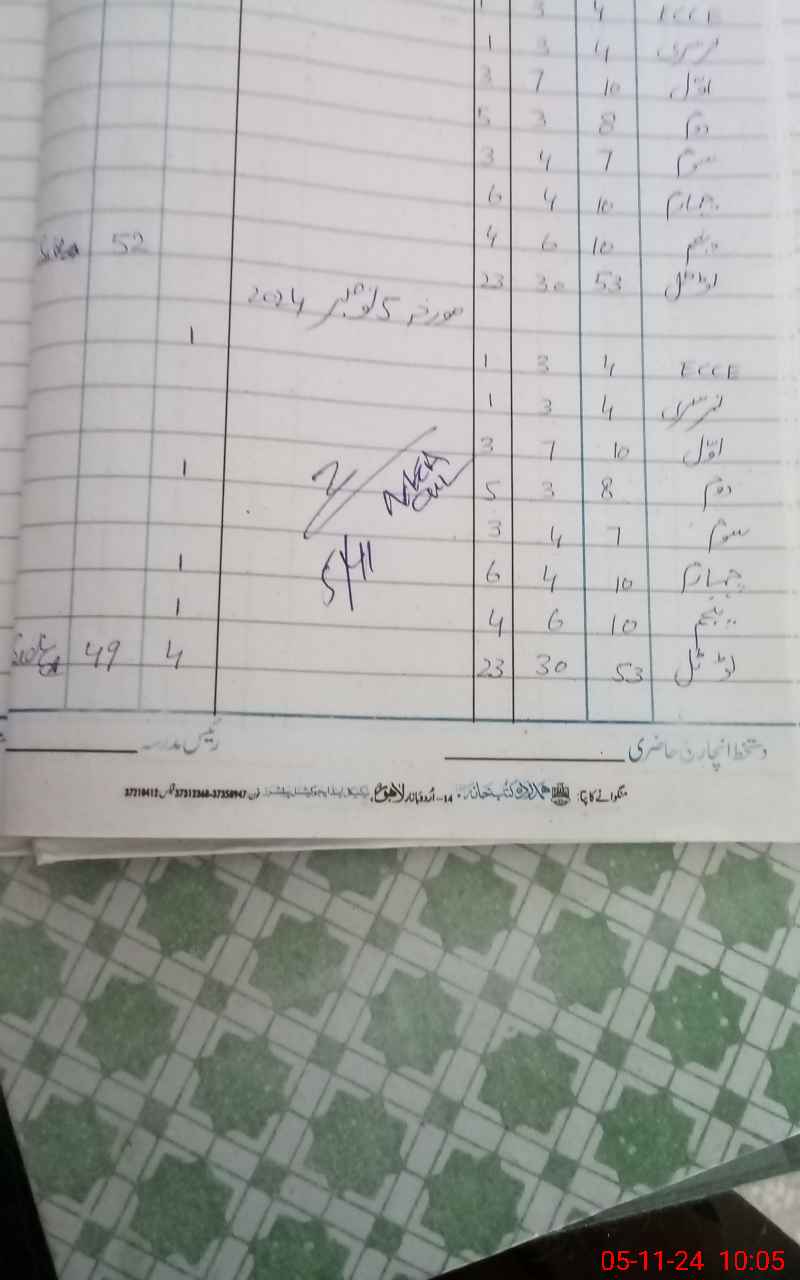 ECCE 4 3 1
نرسری 4 3 1
اوّل 10 7 3
دوم 8 3 5
سوم 7 4 3
چہارم 10 4 6
پنجم 10 6 4 52
ٹوٹل 53 30 23
مورخہ 5 نومبر 2024
1
ECCE 4 3 1
نرسری 4 3 1
اوّل 10 7 3 1
دوم 8 3 5
سوم 7 4 3
چہارم 10 4 6 1
پنجم 10 6 4 1
ٹوٹل 53 30 23 4 49
5/11
دستخط انچارج حاضری
رئیس مدرسہ
منگوانے کا پتا: ہمدرد کتب خانہ 14-اُردو بازار لاہور۔ فون 37312368-37358947 فیکس 37210412
05-11-24 10:05